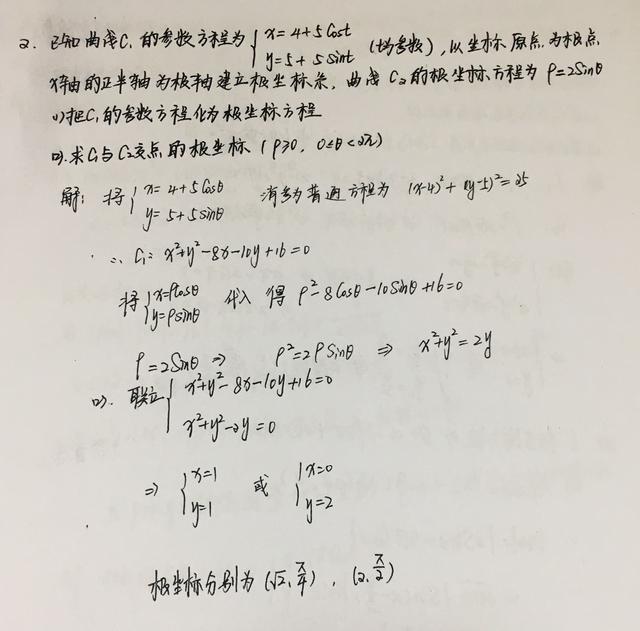 2. 已知曲线C₁的参数方程为 { x=4+5cost y=5+5sint (t为参数), 以坐标原点为极点
x轴的正半轴为极轴建立极坐标系, 曲线C₂的极坐标方程为 ρ=2sinθ
(1)把C₁的参数方程化为极坐标方程
(2).求C₁与C₂交点的极坐标 (ρ≥0, 0≤θ<2π)
解: 将 { x=4+5cosθ y=5+5sinθ 消参为普通方程为 (x-4)²+(y-5)²=25
∴ C₁: x²+y²-8x-10y+16=0
将 { x=ρcosθ y=ρsinθ 代入 得 ρ²-8cosθ-10sinθ+16=0
ρ=2sinθ ⇒ ρ²=2ρsinθ ⇒ x²+y²=2y
(2). 联立 { x²+y²-8x-10y+16=0 x²+y²-2y=0
⇒ { x=1 y=1 或 { x=0 y=2
极坐标分别为 (√2, π/4), (2, π/2)